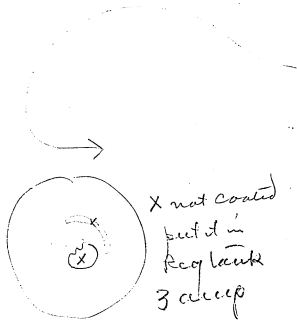 X not coated
put it in
Reg tank
3 amp
X
X